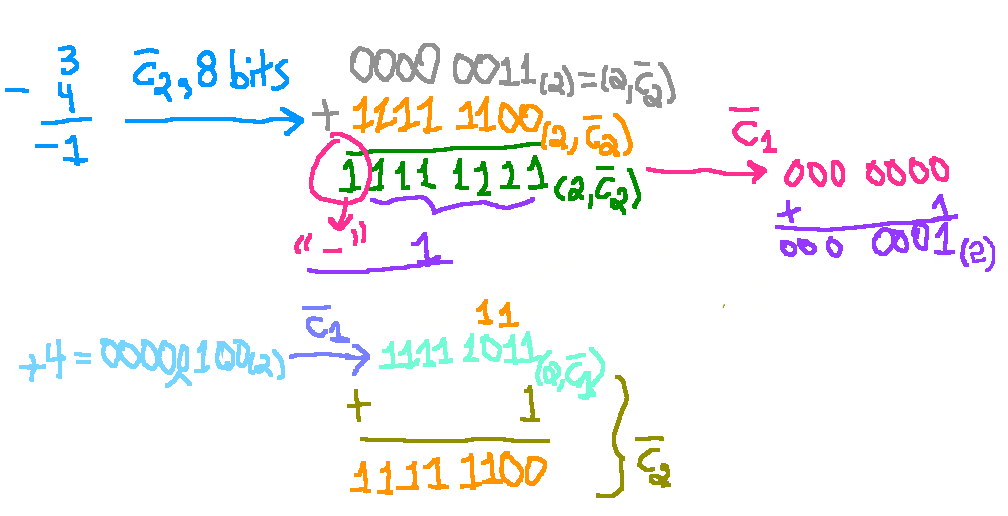 3
- 4
-1
C̅₂, 8 bits
0000 0011(2) = (2,C̅₂)
+ 1111 1100(2,C̅₂)
1 111 1111(2,C̅₂)
"-" 1
C̅₁
000 0000
+ 1
000 0001(2)
+4 = 00000100(2)
C̅₁
11
1111 1011(2,C̅₁)
+ 1
1111 1100
C̅₂